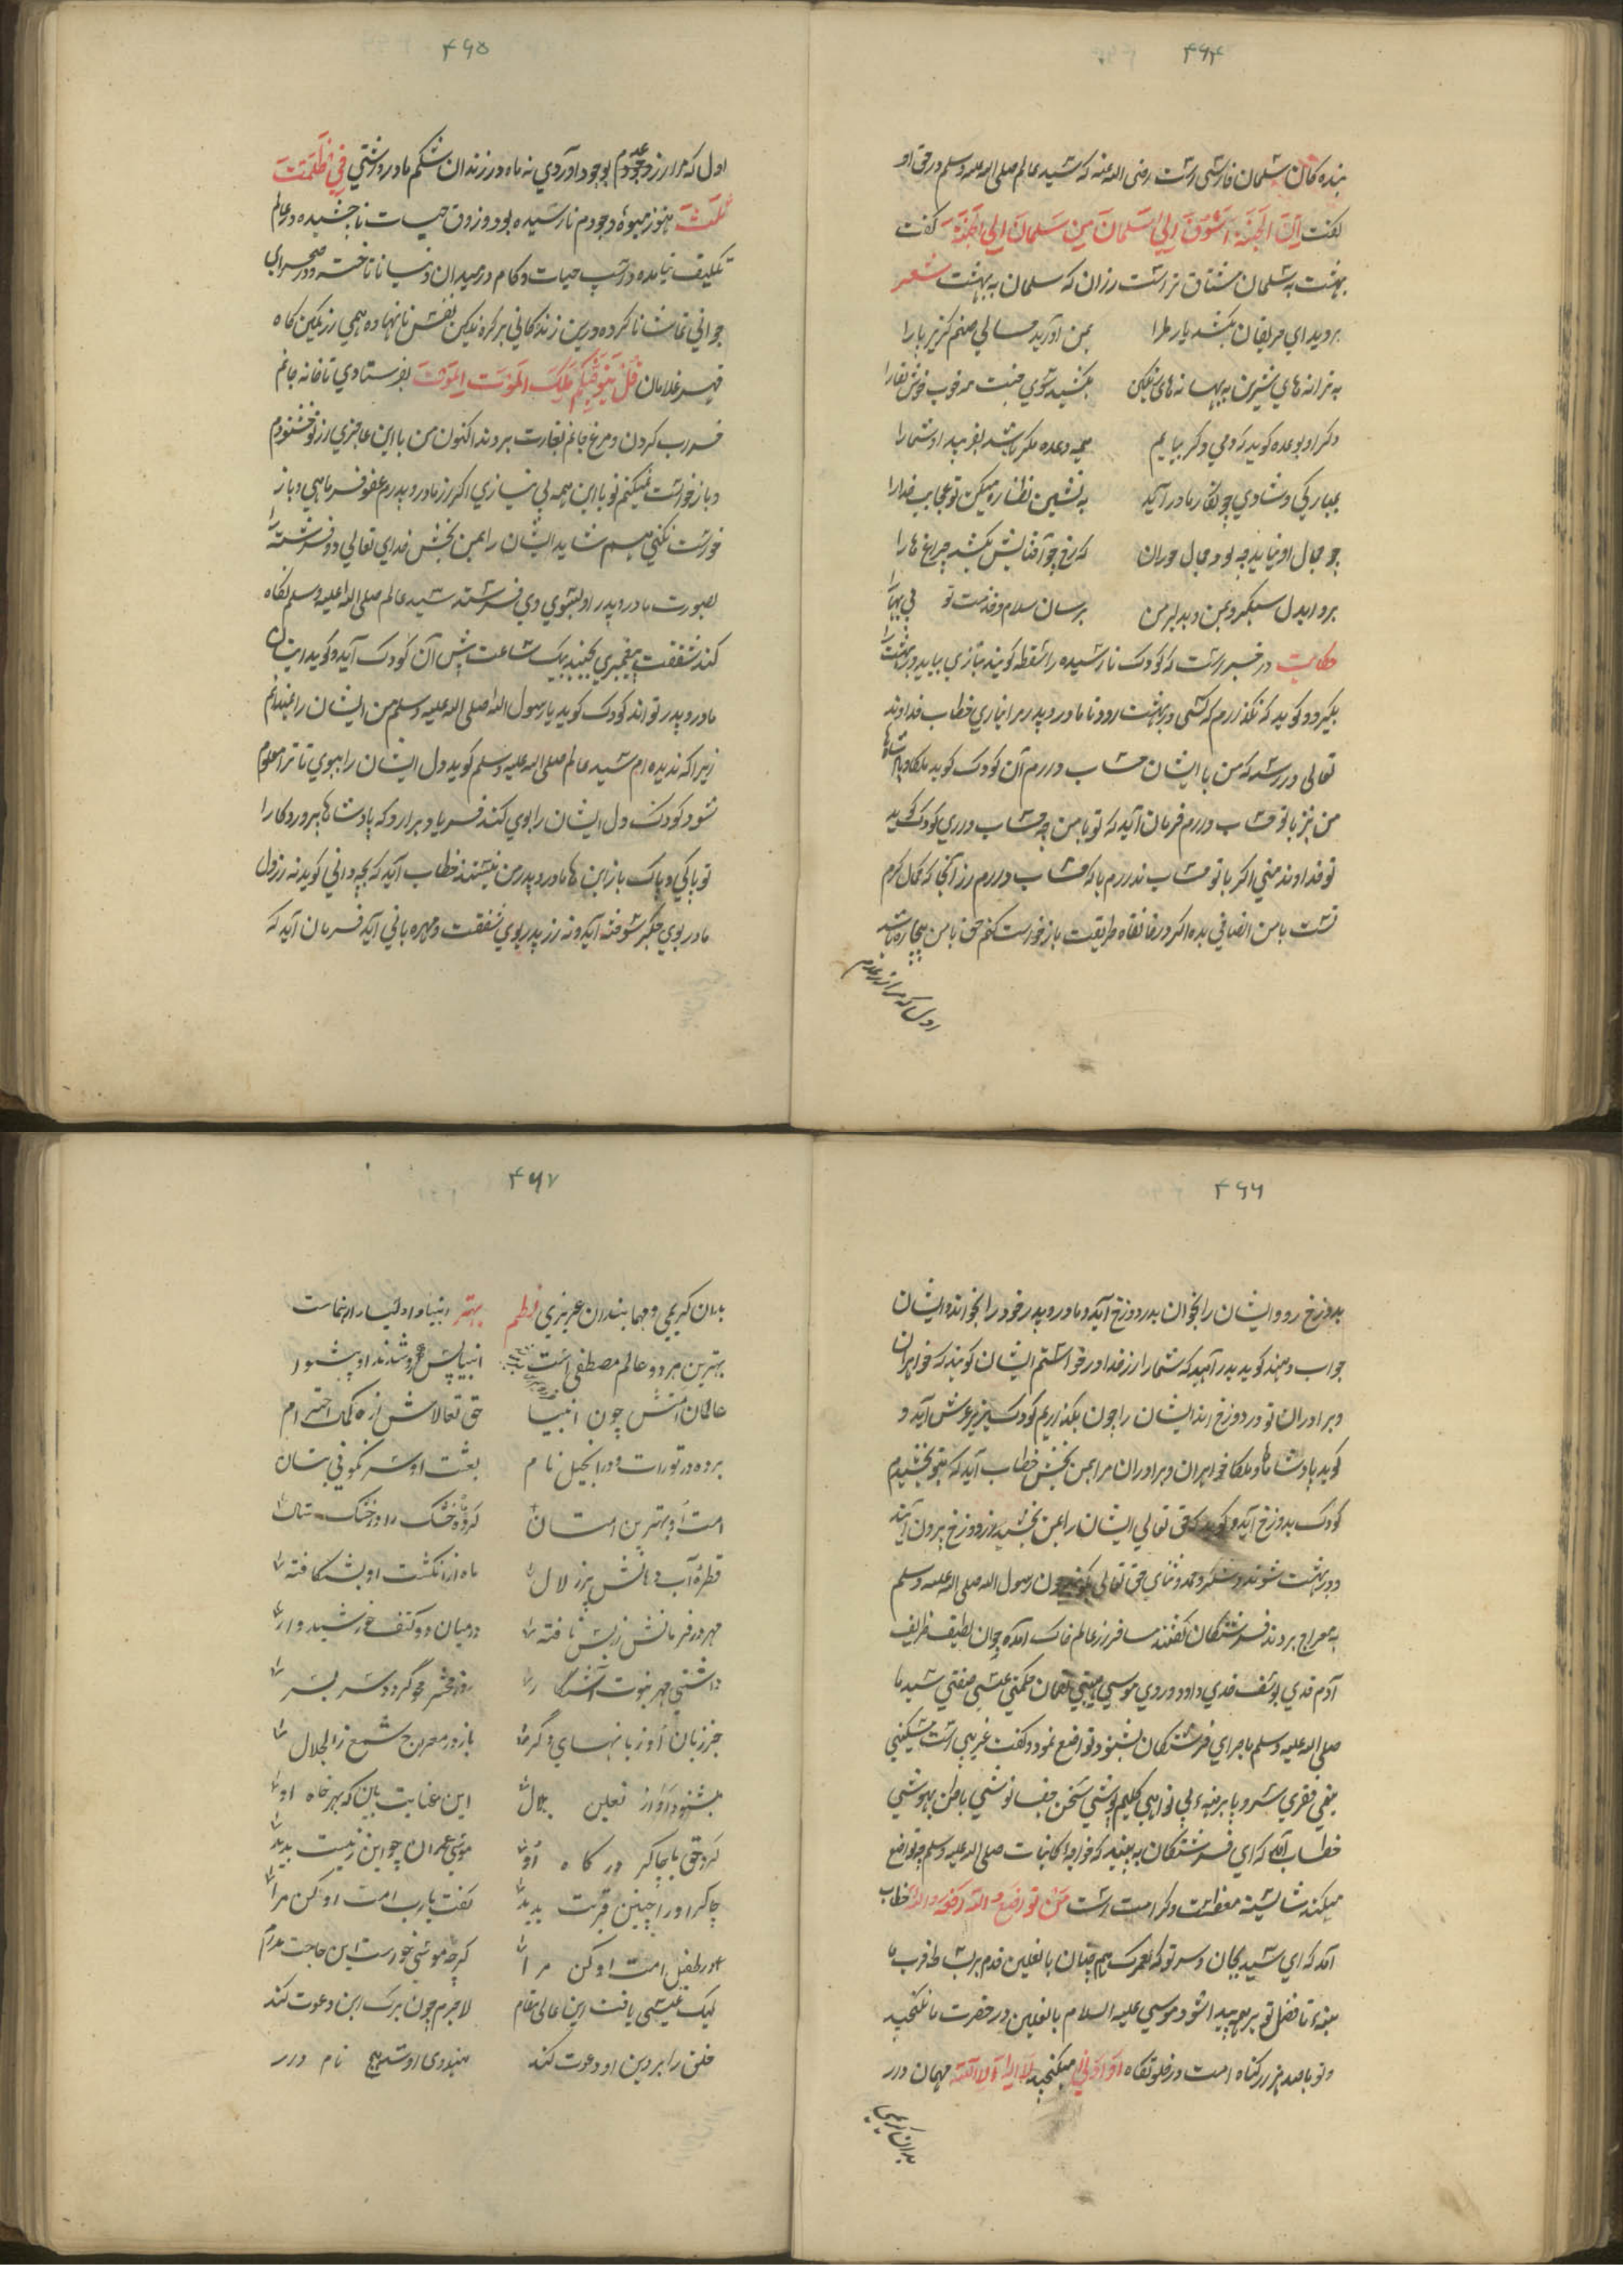 ۴۶۴
بنده کان سلمان فارسی است رضی الله عنه که سید عالم صلی الله علیه وسلم در حق او
گفت اِنَّ الجَنَّةَ اَشْوَقُ اِلیٰ سَلمانَ مِن سَلمانَ اِلی الجَنَّة گفت
بهشت به سلمان مشتاق تر است ازان که سلمان به بهشت شعر
بروید ای حریفان بکشید یار ما را بمن آورید حالی صنم گریز پا را
به ترانه های شیرین به بهانه های رنگین بکشید سوی خوب خوش لقا را
وگر او بوعده گوید که دمی دگر بیایم همه وعده مکر باشد بفریبد او شما را
بمبارکی و شادی چو نگار ما در آید به نشین نظاره میکن تو عجایب خدا را
چو جمال او نماید چه بود جمال خوران که رخ چو آفتابش بکشد چراغ ها را
برو ایدل سبک رو بمن دلبر من برسان سلام و خدمت تو بی بها را
حکایت در خبر است که کودک نارسیده را سقطه گویند بتازی بیاید در بهشت را
بگیرد و گوید که نگذارم که کسی در بهشت رود تا مادر و پدر مرا نیاری خطاب خداوند
تعالی در رسد که من با ایشان حساب دارم آن کودک گوید ملکا و پادشاها
من نیز با تو حساب دارم فرمان آید که تو با من چه حساب داری کودک گوید
تو خداوند منی اگر با تو حساب ندارم با که حساب دارم از آنجا که کمال کرم
تست با من انصافی بده اگر در خانقاه طریقت باز خواست کنم حق با من بیچاره باشد
اول که مرا از عدم
۴۶۵
اول که مرا از عدم بوجود آوردی نه ماه در زندان شکم مادر داشتی فِی ظُلُمٰتٍ
ثَلٰثٍ هنوز میوهٔ وجودم نارسیده بود و ذوق حیات ناچشیده در عالم
تکلیف نیامده و اسپ حیات و کام در میدان دنیا نا تاخته و در صحرای
جوانی تماشا ناکرده و درین زندگانی بر کره نگین نفس نانهاده همی از کمین گاه
قهر غلامان قُلْ یَتَوَفّٰیکُم مَلَکُ المَوتِ بفرستادی تا خانه جانم
خراب کردن و مرغ جانم بغارت بردند اکنون من با این عاجزی از تو خشنودم
و باز خواست نمیکنم تو با این همه بی نیازی اگر از مادر و پدرم عفو فرمایی و باز
خواست نکنی هم شاید ایشان را بمن بخش خدای تعالی دو فرشته را
بصورت مادر و پدر او بسوی وی فرستد سید عالم صلی الله علیه وسلم نگاه
کند شفقت پیغمبری بجنبد بیک ساعت پیش آن کودک آید و گوید اینان
مادر و پدر تو اند کودک گوید یا رسول الله صلی الله علیه وسلم من ایشان را نمیدانم
زیرا که ندیده ام سید عالم صلی الله علیه وسلم گوید دل ایشان را ببوی تا ترا معلوم
شود کودک دل ایشان را بوی کند فریاد برارد که پادشاها پروردگارا
تو پاکی و پاک باز این ها مادر و پدر من نیستند خطاب آید که بچه دانی گوید نه از دل
مادر بوی جگر سوخته آید و نه از پدر بوی شفقت و مهربانی آید فرمان آید که
۴۶۶
بدوزخ رو و ایشان را بخوان بدر دوزخ آید و مادر و پدر خود را بخواند ایشان
جواب دهند گوید بدر آیید که شما را از خدا در خواستم ایشان گویند که خواهران
و برادران تو در دوزخ اند ایشان را چون بگذاریم کودک بزیر عرش آید و
گوید پادشاها و ملکا خواهران و برادران مرا بمن بخش خطاب آید که بتو بخشیدم
کودک بدوزخ آید و گوید که حق تعالی ایشان را بمن بخشید از دوزخ برون آیند
و در بهشت شوند و شکر و حمد و ثنای حق تعالی گویند چون رسول الله صلی الله علیه وسلم
به معراج بردند فرشتگان گفتند مسافر از عالم خاک آمده جوان لطیف ظریف
آدم قدی یوسف خدی داود وردی موسی هیبتی لقمان حکمتی عیسی صفتی سید ما
صلی الله علیه وسلم ماجرای فرشتگان بشنود تواضع نمود و گفت غریبی است مسکینی
یتیمی فقیری سر و پا برهنه بی نوایی گلیم پوشی سخن جفا نوشی باطن بهوشی
خطاب آمد که ای فرشتگان به بینید که خواجه کاینات صلی الله علیه وسلم چه تواضع
میکند شایسته معظمت و کرامت است مَن تَواضَعَ لِلّٰه رَفَعَهُ الله خطاب
آمد که ای سید بجان و سر تو که لعمرک هم چنان با نعلین قدم بر بساط قرب ما
بنه تا فضل تو بر همه پیدا شود موسی علیه السلام با نعلین در حضرت ما نگنجید
و تو با صد هزار گناه امت در خلوتگاه اَو اَدنیٰ میگنجی لا اله الا الله مهمان دار
بدان کریمی
۴۶۷
بدان کریمی و مهمانندان عزیزی نظم بهتر انبیا و اولیا را رهنماست
بهترین هر دو عالم مصطفی است انبیا پس رو شدند او پیشوا
عالمان امتش چون انبیا حق تعالاش از کمال احترام
برده در تورات و در انجیل نام بعثت او سرنگونی بتان
امت او بهترین امتان کرد چاه خشک را در خشک سال
قطرهٔ آب دهانش پر زلال ماه از انگشت او بشکافته
مهر در فرمانش از پس تافته در میان دو کتف خورشید وار
داشتی مهر نبوت آشکار روز محشر محو گردد سر بسر
جز زبان او زبانهای دگر باز در معراج شمع ذالجلال
بشنود آواز نعلین بلال این عنایت بین که بهر جاه او
کرد حق با چاکر درگاه او موسی عمران چو این رتبت بدید
چاکر او را چنین قربت بدید گفت یارب امت او کن مرا
در طفیل امت او کن مرا گرچه موسی خواست این حاجت مدام
لیک عیسی یافت این عالی مقام لاجرم چون ترک این دعوت کند
خلق را بر دین او دعوت کند هندوی او شد مسیح نام دار